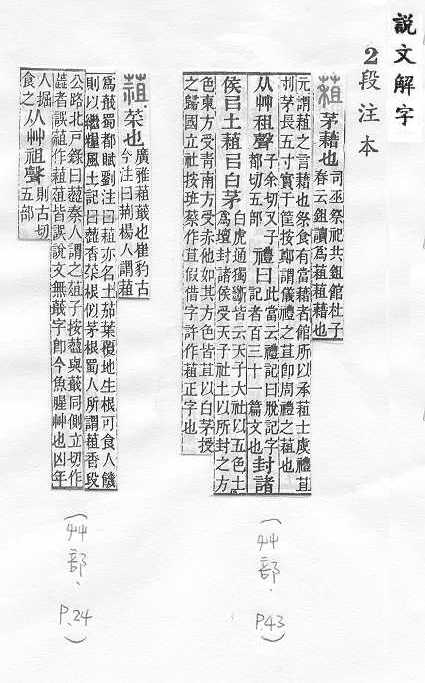 說文解字
2段注本
蒩 茅藉也 司巫祭祀共蒩館杜子
春云鉏讀爲蒩蒩藉也
元謂蒩之言藉也祭食有當藉者館所以承蒩士虞禮苴
刌茅長五寸實于筐按鄭謂儀禮之苴卽周禮之蒩也
从艸租聲 子余切又子
都切五部 禮曰 此當云禮記曰脫記字
記者百三十一篇文也 封諸
侯㠯土蒩㠯白茅 白虎通獨斷皆云天子大社以五色土
爲壇封諸侯受天子社土以所封之方
色東方受靑南方受赤他如其方色皆苴以白茅授
之歸國立社按班蔡作苴假借字許作蒩正字也
(艸部．P.43)
蒩 菜也 廣雅蒩蕺也崔豹古
今注曰荊楊人謂蒩
爲蕺蜀都賦劉注曰蒩亦名土茄葉覆地生根可食人饑
則以繼糧風土記曰蕺香菜根似茅根蜀人所謂蒩香段
公路北戶錄曰蕺秦人謂之蒩子按蘁與蕺同側立切作
者誤蒩作皆誤說文無蕺字卽今魚腥艸也凶年
人掘
食之 从艸祖聲 則古切
五部
(艸部．P.24)